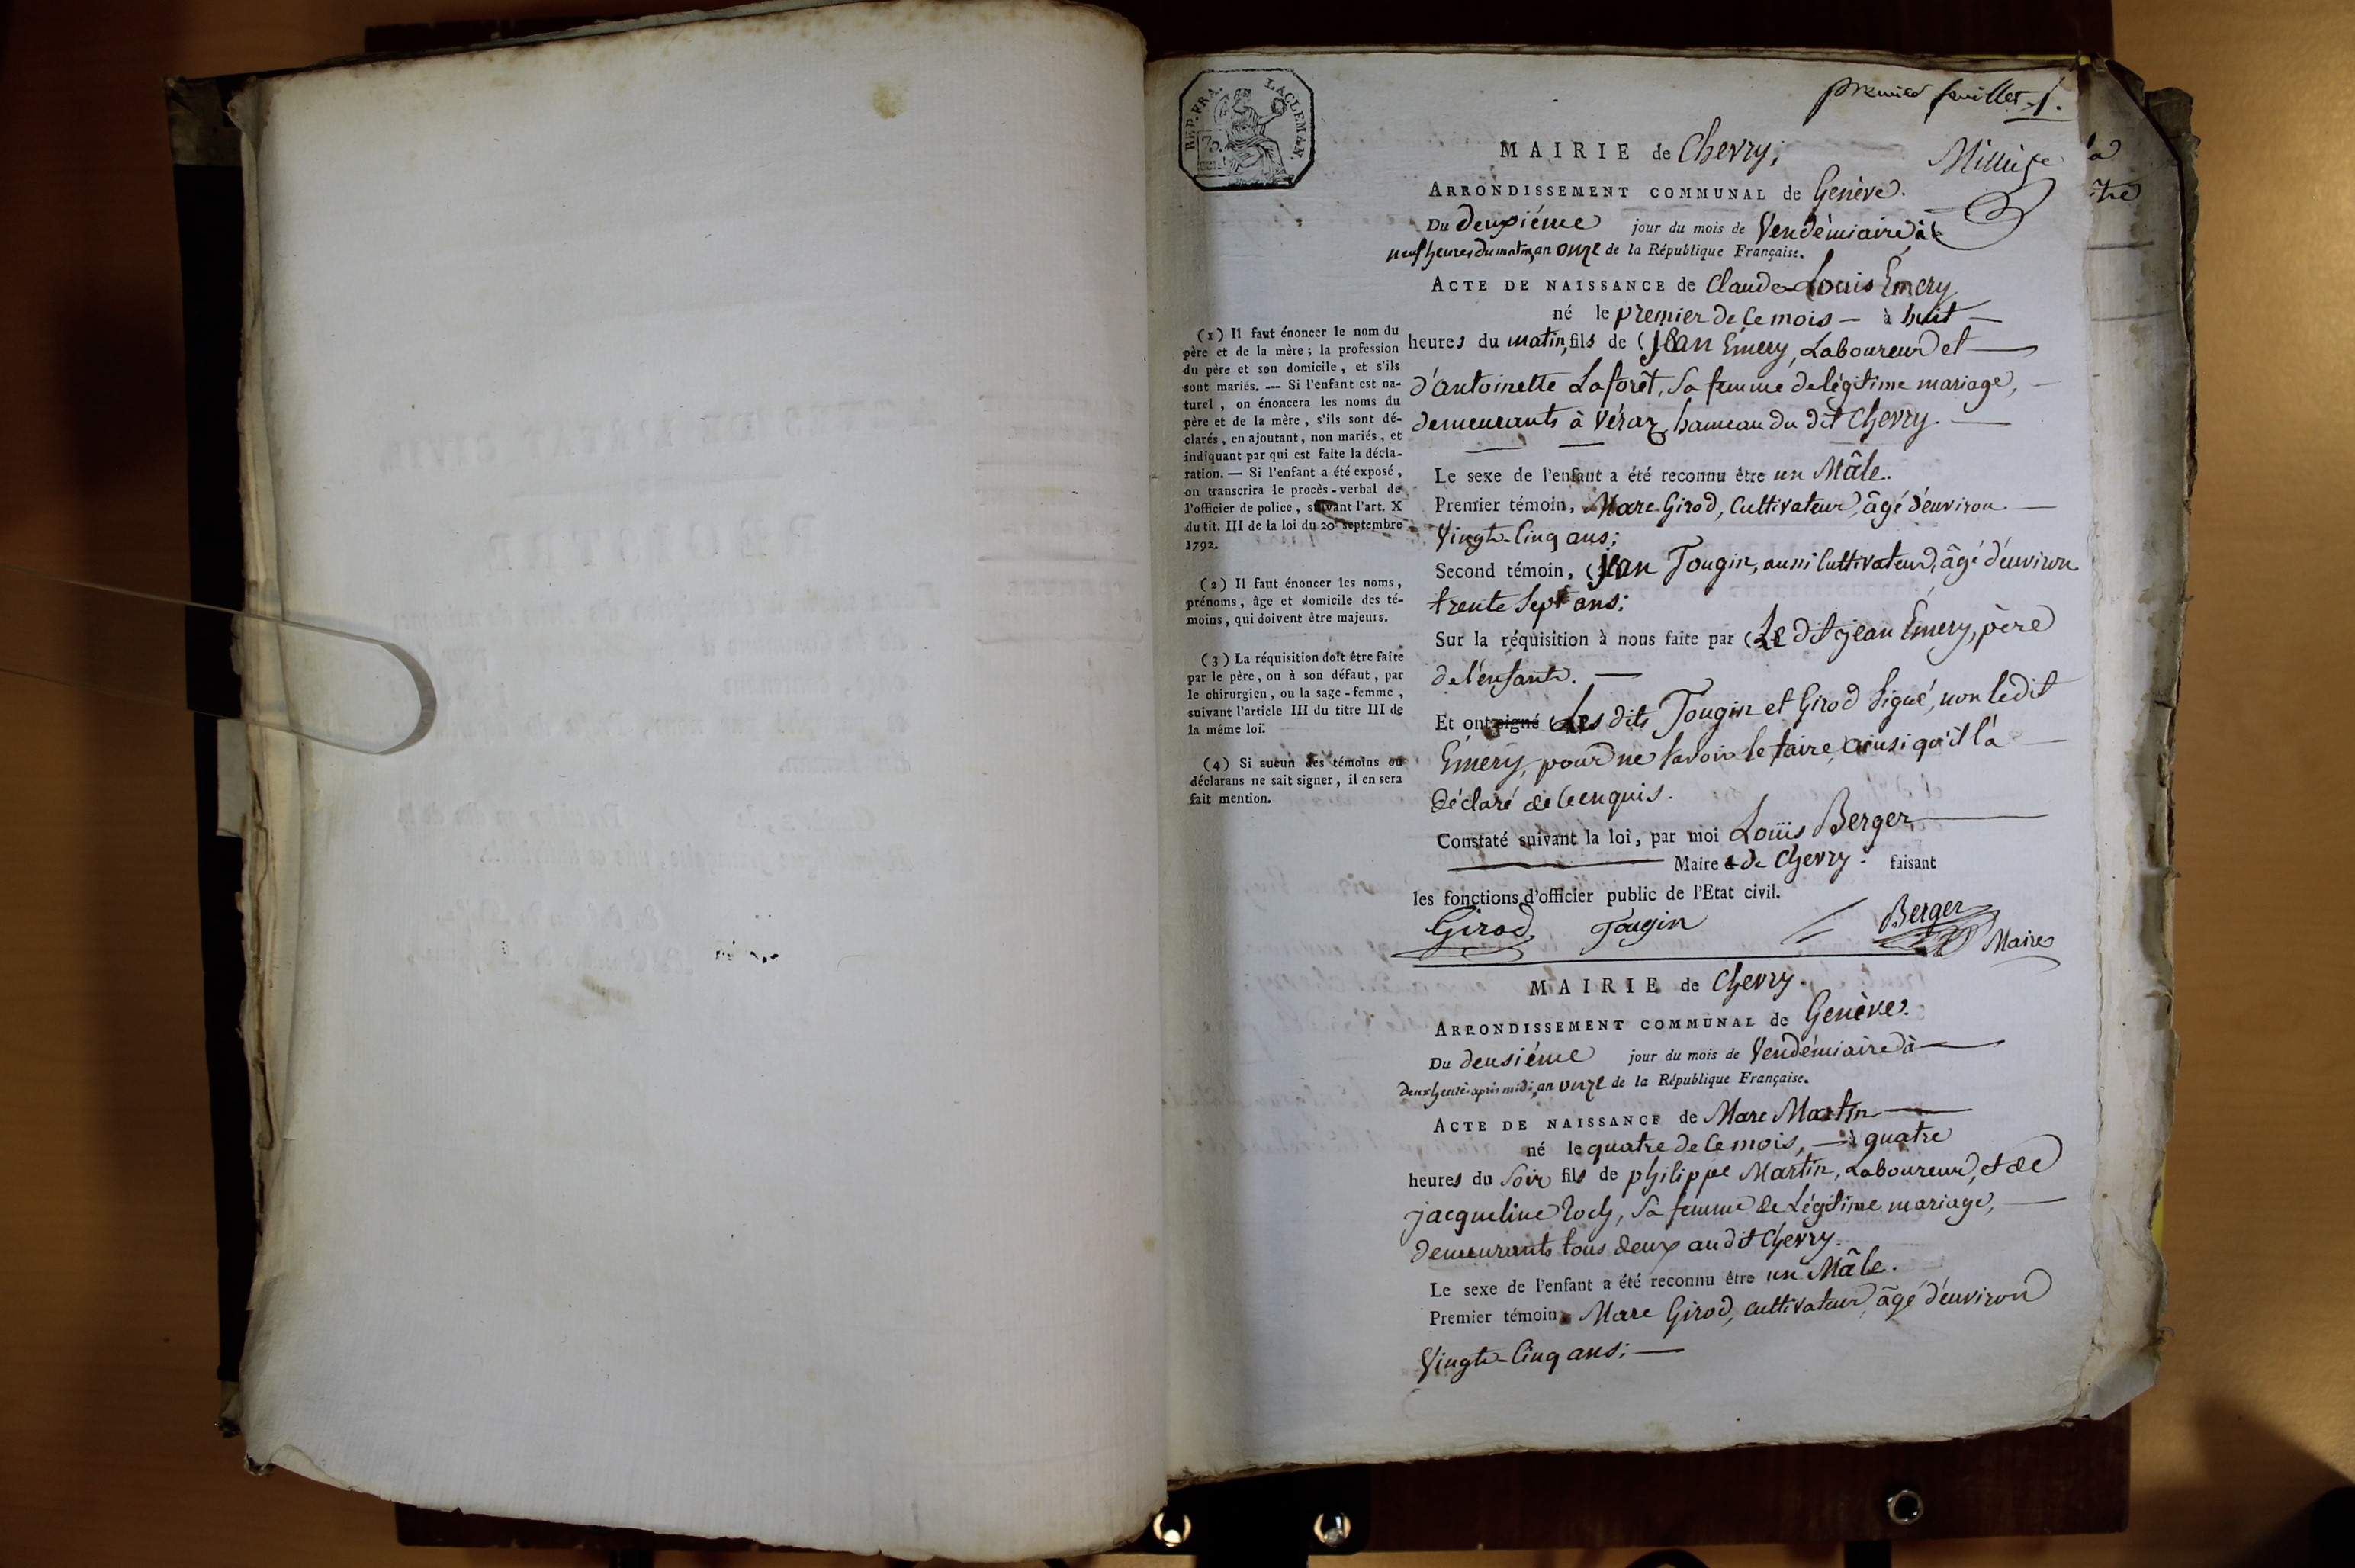 premier feuillet 1.
REP. FRA. LACLEM. AN.
75.
MAIRIE de Chevry;
ARRONDISSEMENT COMMUNAL de Genève.
Du deuxiéme jour du mois de Vendémiaire à
neuf heures du matin, an onze de la République Française.
ACTE DE NAISSANCE de Claude Louis Émery
né le premier de ce mois — à huit —
heures du matin, fils de (jean Émery, Laboureur et —
d'antoinette Laforêt, sa femme de légitime mariage, —
demeurants à Véraz, hameau du dit Chevry. —
Le sexe de l'enfant a été reconnu être un Mâle.
Premier témoin, Marc Girod, Cultivateur, âgé d'environ —
Vingt-Cinq ans;
Second témoin, (jean Tougin, aussi Cultivateur, âgé d'environ
trente sept ans;
Sur la réquisition à nous faite par (Le dit jean Émery, père
de l'enfant. —
Et ont signé (Les dits Tougin et Girod signé, non le dit
Émery, pour ne savoir le faire, ainsi qu'il l'a —
déclaré de ce enquis.
Constaté suivant la loi, par moi Louïs Berger —
Maire de Chevry. faisant
les fonctions d'officier public de l'Etat civil.
Girod Tougin Berger
Maire
MAIRIE de Chevry.
ARRONDISSEMENT COMMUNAL de Genève.
Du deusiéme jour du mois de Vendémiaire à —
deux heures après midi, an onze de la République Française.
ACTE DE NAISSANCE de Marc Martin —
né le quatre de ce mois, — à quatre
heures du Soir fils de philippe Martin, Laboureur, et de
jacqueline Roch, sa femme de Légitime mariage, —
demeurants tous deux au dit Chevry.
Le sexe de l'enfant a été reconnu être un Mâle.
Premier témoin, Marc Girod, cultivateur, âgé d'environ
Vingt-Cinq ans; —
(1) Il faut énoncer le nom du
père et de la mère; la profession
du père et son domicile, et s'ils
sont mariés. — Si l'enfant est na-
turel, on énoncera les noms du
père et de la mère, s'ils sont dé-
clarés, en ajoutant, non mariés, et
indiquant par qui est faite la décla-
ration. — Si l'enfant a été exposé,
on transcrira le procès-verbal de
l'officier de police, suivant l'art. X
du tit. III de la loi du 20 septembre
1792.
(2) Il faut énoncer les noms,
prénoms, âge et domicile des té-
moins, qui doivent être majeurs.
(3) La réquisition doit être faite
par le père, ou à son défaut, par
le chirurgien, ou la sage-femme,
suivant l'article III du titre III de
la même loi.
(4) Si aucun des témoins ou
déclarans ne sait signer, il en sera
fait mention.